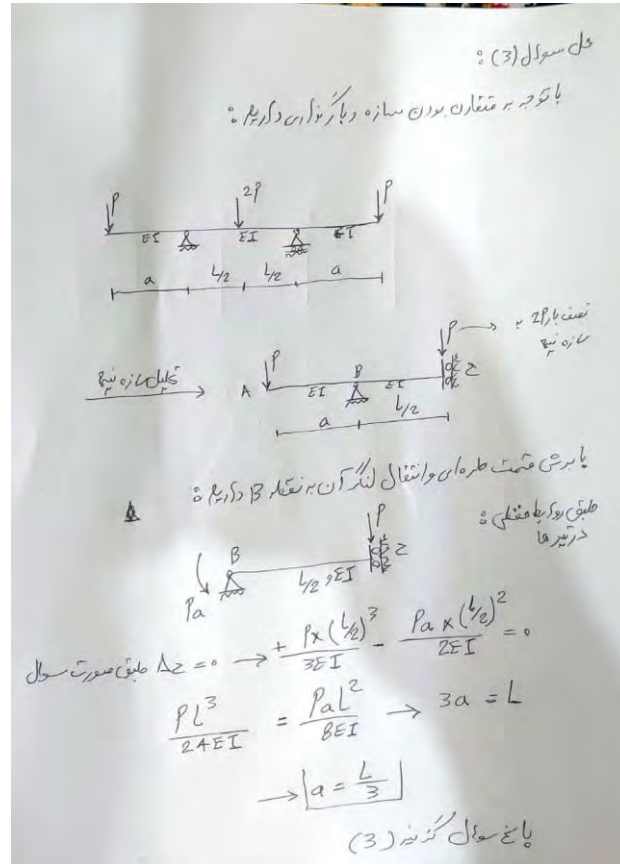 حل سوال (3) :
با توجه به متقارن بودن سازه و بارگذاری داریم :
P 2P P
EI EI EI
a L/2 L/2 a
نصف بار 2P به
سازه نیم
تحلیل سازه نیم
P P
A EI B EI C
a L/2
با برش قسمت طره‌ای و انتقال لنگر آن به نقطه B داریم :
طبق روابط
در تیرها
B P
Pa L/2 , EI C
طبق صورت سوال Δc = 0 → + P×(L/2)^3 / 3EI - Pa×(L/2)^2 / 2EI = 0
PL^3 / 24EI = PaL^2 / 8EI → 3a = L
→ a = L/3
پاسخ سوال گزینه (3)